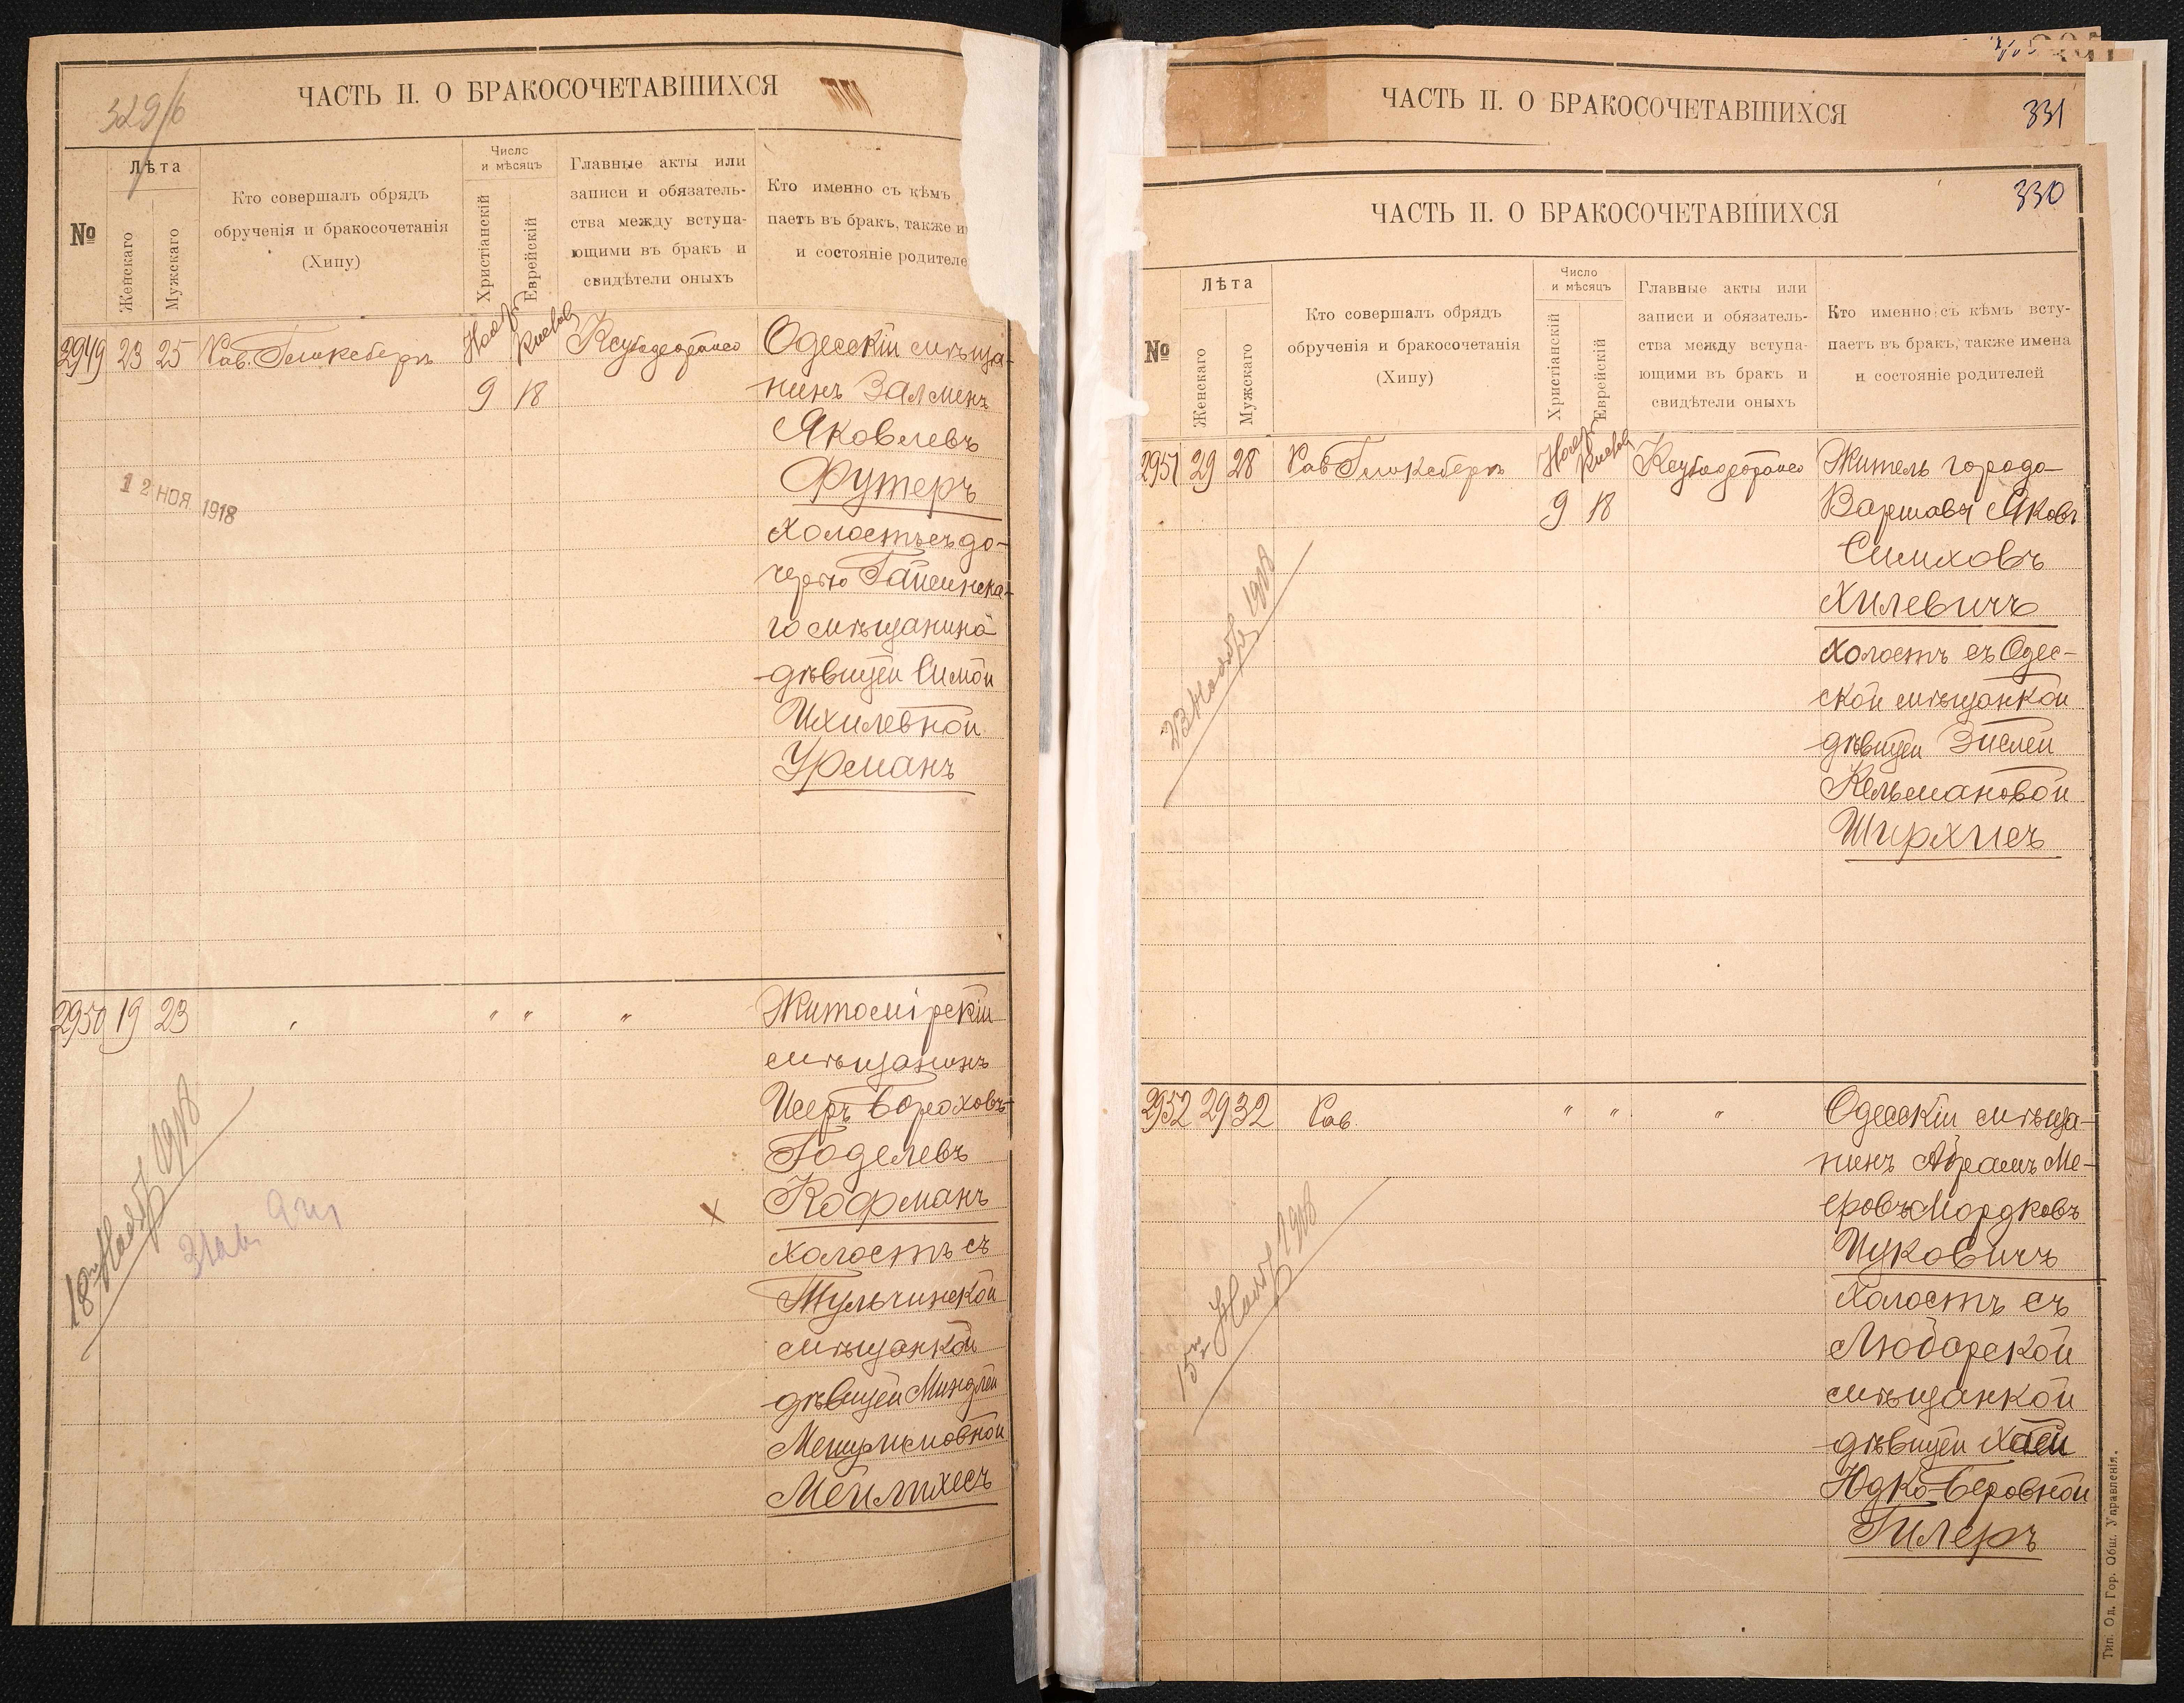 329/б
ЧАСТЬ II. О БРАКОСОЧЕТАВШИХСЯ
№
Лѣта
Женскаго
Мужскаго
Кто совершалъ обрядъ
обрученія и бракосочетанія
(Хипу)
Число
и мѣсяцъ
Христіанскій
Еврейскій
Главные акты или
записи и обязатель-
ства между вступа-
ющими въ бракъ и
свидѣтели оныхъ
Кто именно съ кѣмъ
паетъ въ бракъ, также
и состояніе родителе
2949 23 25 Рав. Гликсбергъ
Нояб. 9
Кислев 18
Одесскій мѣща-
нинъ Залменъ
Яковлевъ
Футеръ
холостъ съ до-
черью Гайсинска-
го мѣщанина
дѣвицей Симой
Ихилевной
Урманъ
12 НОЯ 1918
2950 19 23 " " " "
Житомірскій
мѣщанинъ
Исеръ Бороховъ-
Годелевъ
Кофманъ
холостъ съ
Тульчинской
мѣщанкой
дѣвицей Миндлей
Мешулимовной
Мейлихесъ
18го Нояб 1918
ЧАСТЬ II. О БРАКОСОЧЕТАВШИХСЯ
331
ЧАСТЬ II. О БРАКОСОЧЕТАВШИХСЯ
330
№
Лѣта
Женскаго
Мужскаго
Кто совершалъ обрядъ
обрученія и бракосочетанія
(Хипу)
Число
и мѣсяцъ
Христіанскій
Еврейскій
Главные акты или
записи и обязатель-
ства между вступа-
ющими въ бракъ и
свидѣтели оныхъ
Кто именно съ кѣмъ всту-
паетъ въ бракъ, также имена
и состояніе родителей
2951 29 28 Рав Гликсбергъ
Нояб. 9
Кислев 18
Житель города
Варшавы Яковъ
Симховъ
Хилевичъ
холостъ съ Одес-
ской мѣщанкой
дѣвицей Эйслей
Кельмановой
Ширхисъ
23 Нояб 1918
2952 29 32 Рав. " " "
Одесскій мѣща-
нинъ Абрамъ Ме-
еровъ Мордковъ
Цуковичъ
холостъ съ
Любарской
мѣщанкой
дѣвицей Хаей
Юдко-Беровной
Гилеръ
15го Нояб 1918
Тип. Од. Гор. Общ. Управленія.